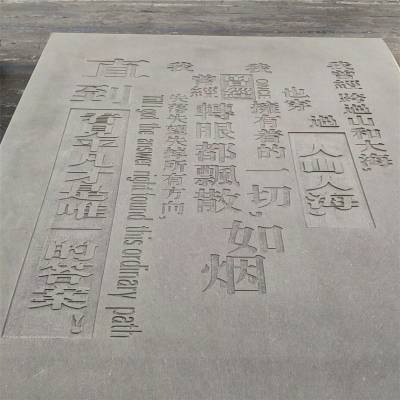 我曾經跨過山和大海,
也穿過
人山人海,
我曾經
once
擁有着的一切,
轉眼都飄散
如烟
我曾經
失落失望失掉所有方向,
Till got the answer right found this ordinary path
直到
看見平凡才是唯一
的答案。